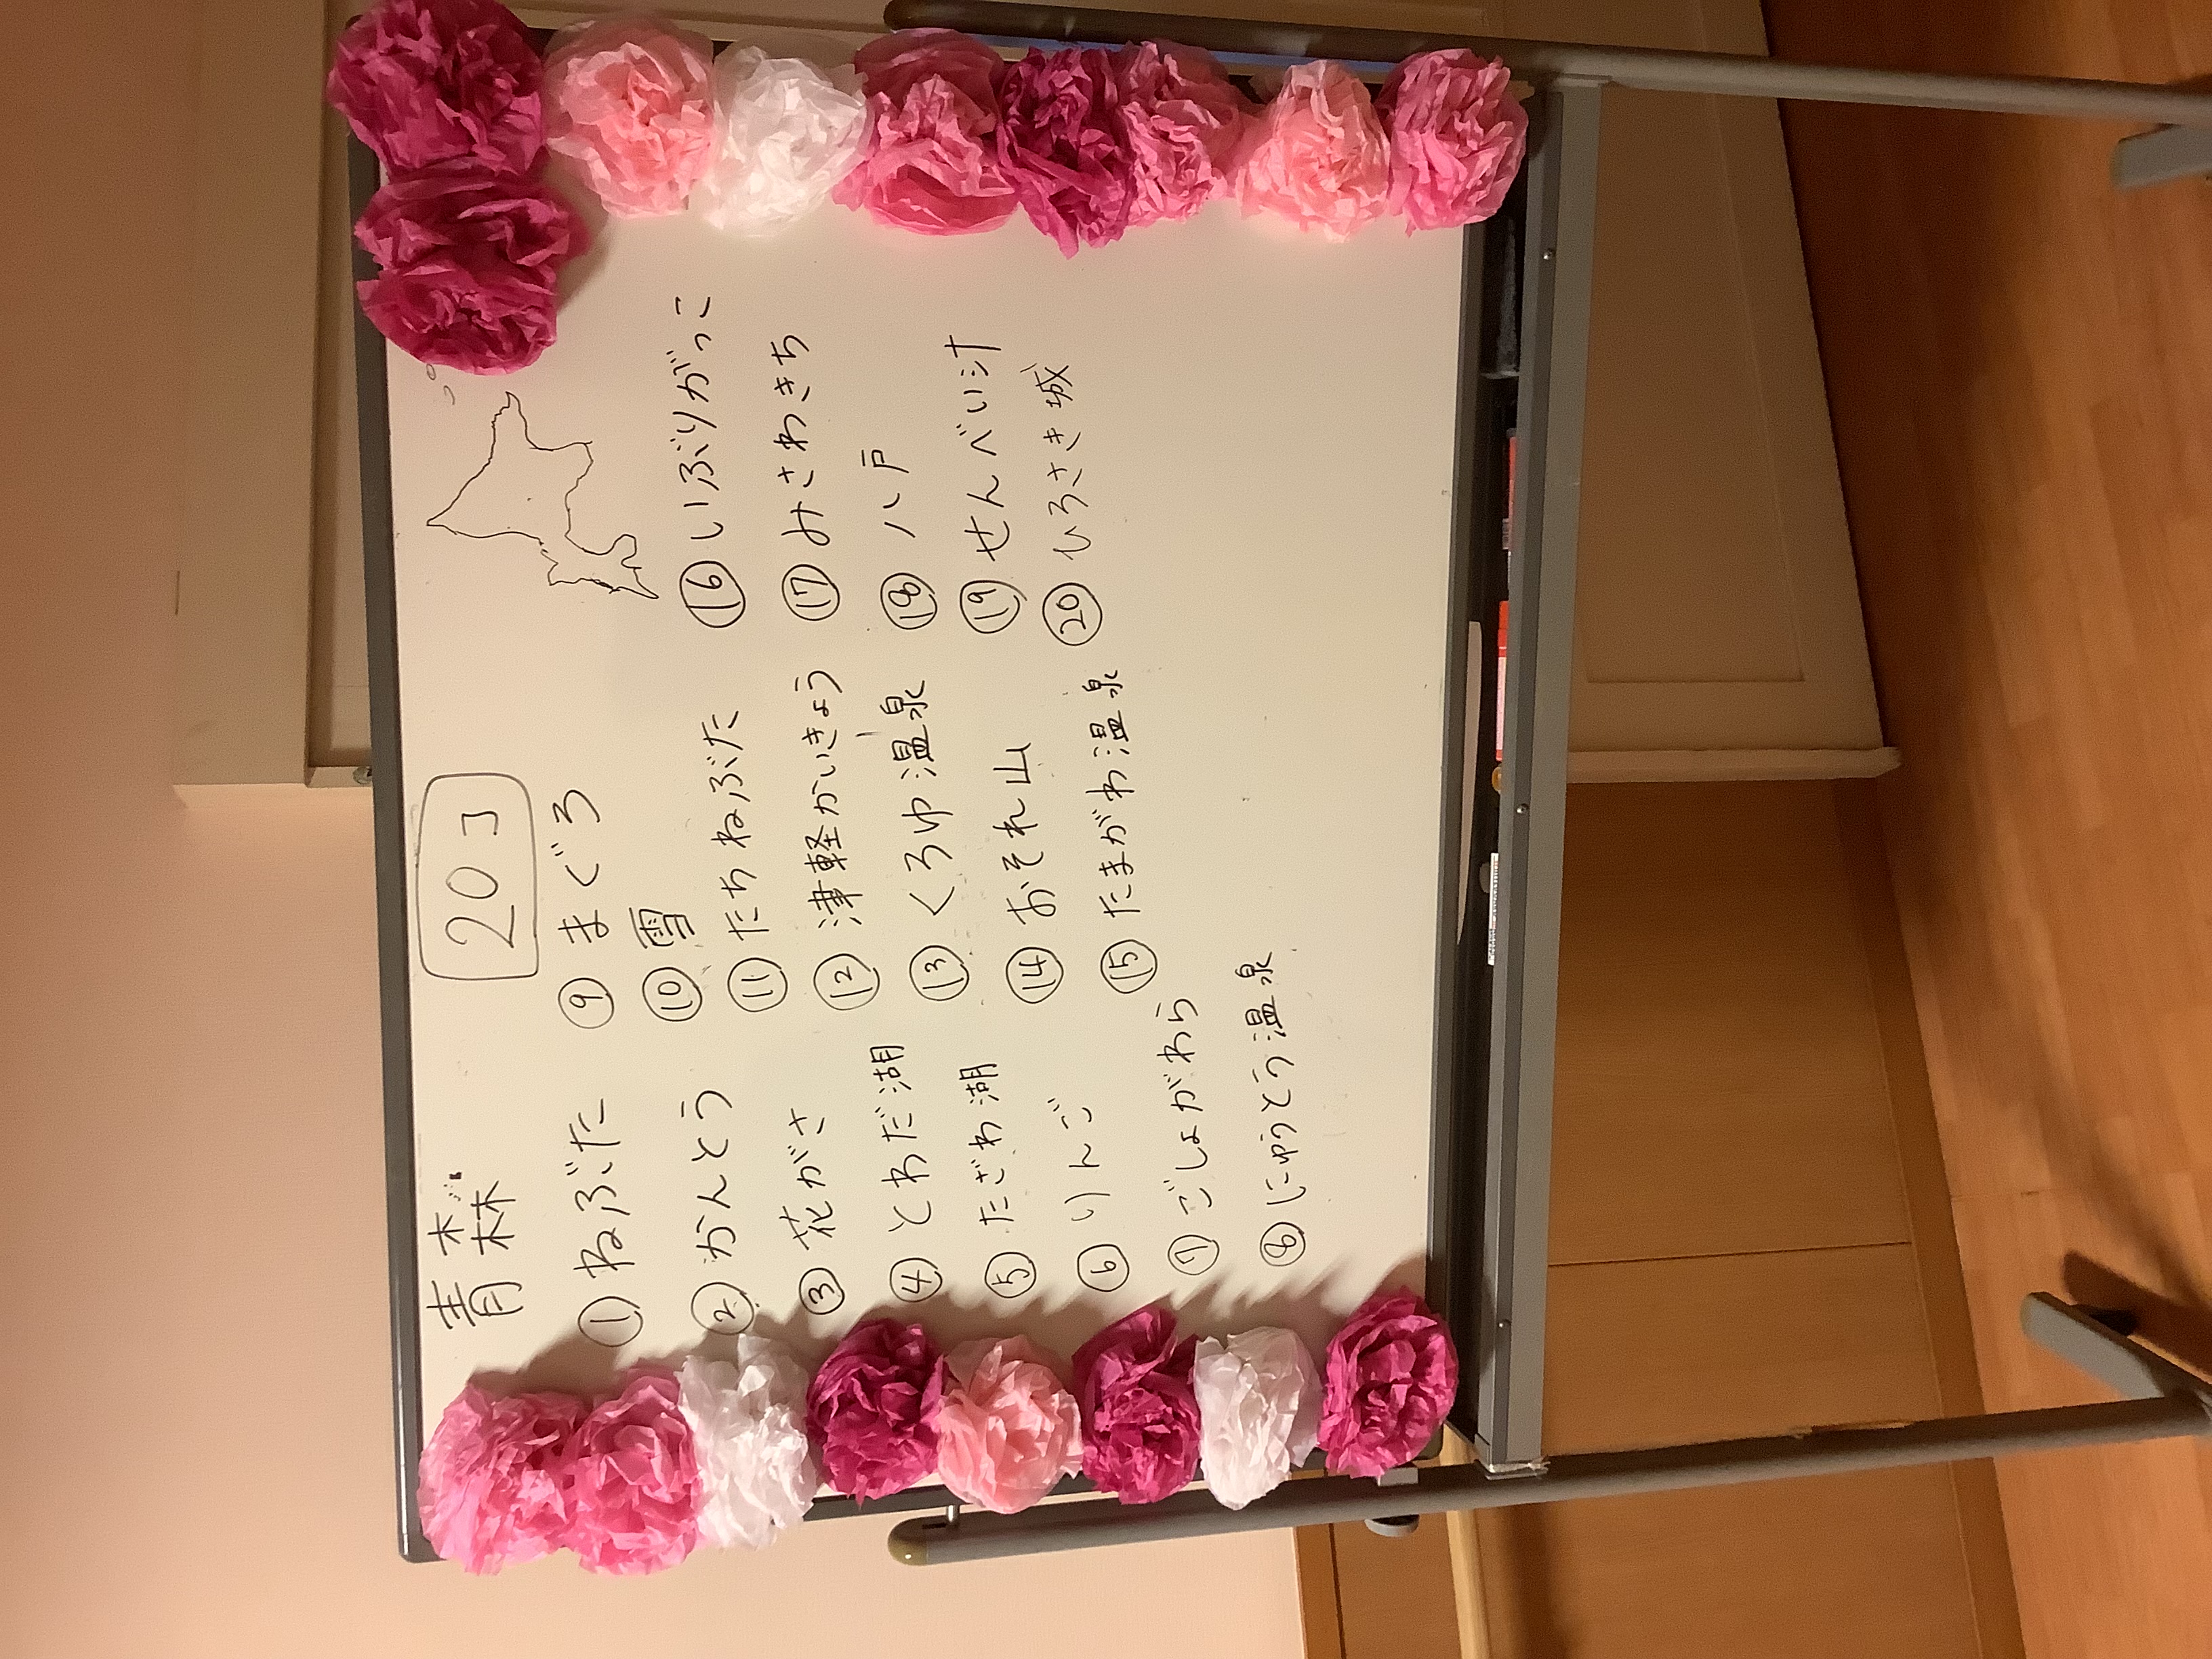 青森
20コ
① ねぶた
② かんとう
③ 花がさ
④ とわだ湖
⑤ たざわ湖
⑥ りんご
⑦ ごしょがわら
⑧ にゅうとう温泉
⑨ まぐろ
⑩ 雪
⑪ たちねぶた
⑫ 津軽かいきょう
⑬ くろゆ温泉
⑭ おそれ山
⑮ たまがわ温泉
⑯ いぶりがっこ
⑰ みさわきち
⑱ 八戸
⑲ せんべい汁
⑳ ひろさき城